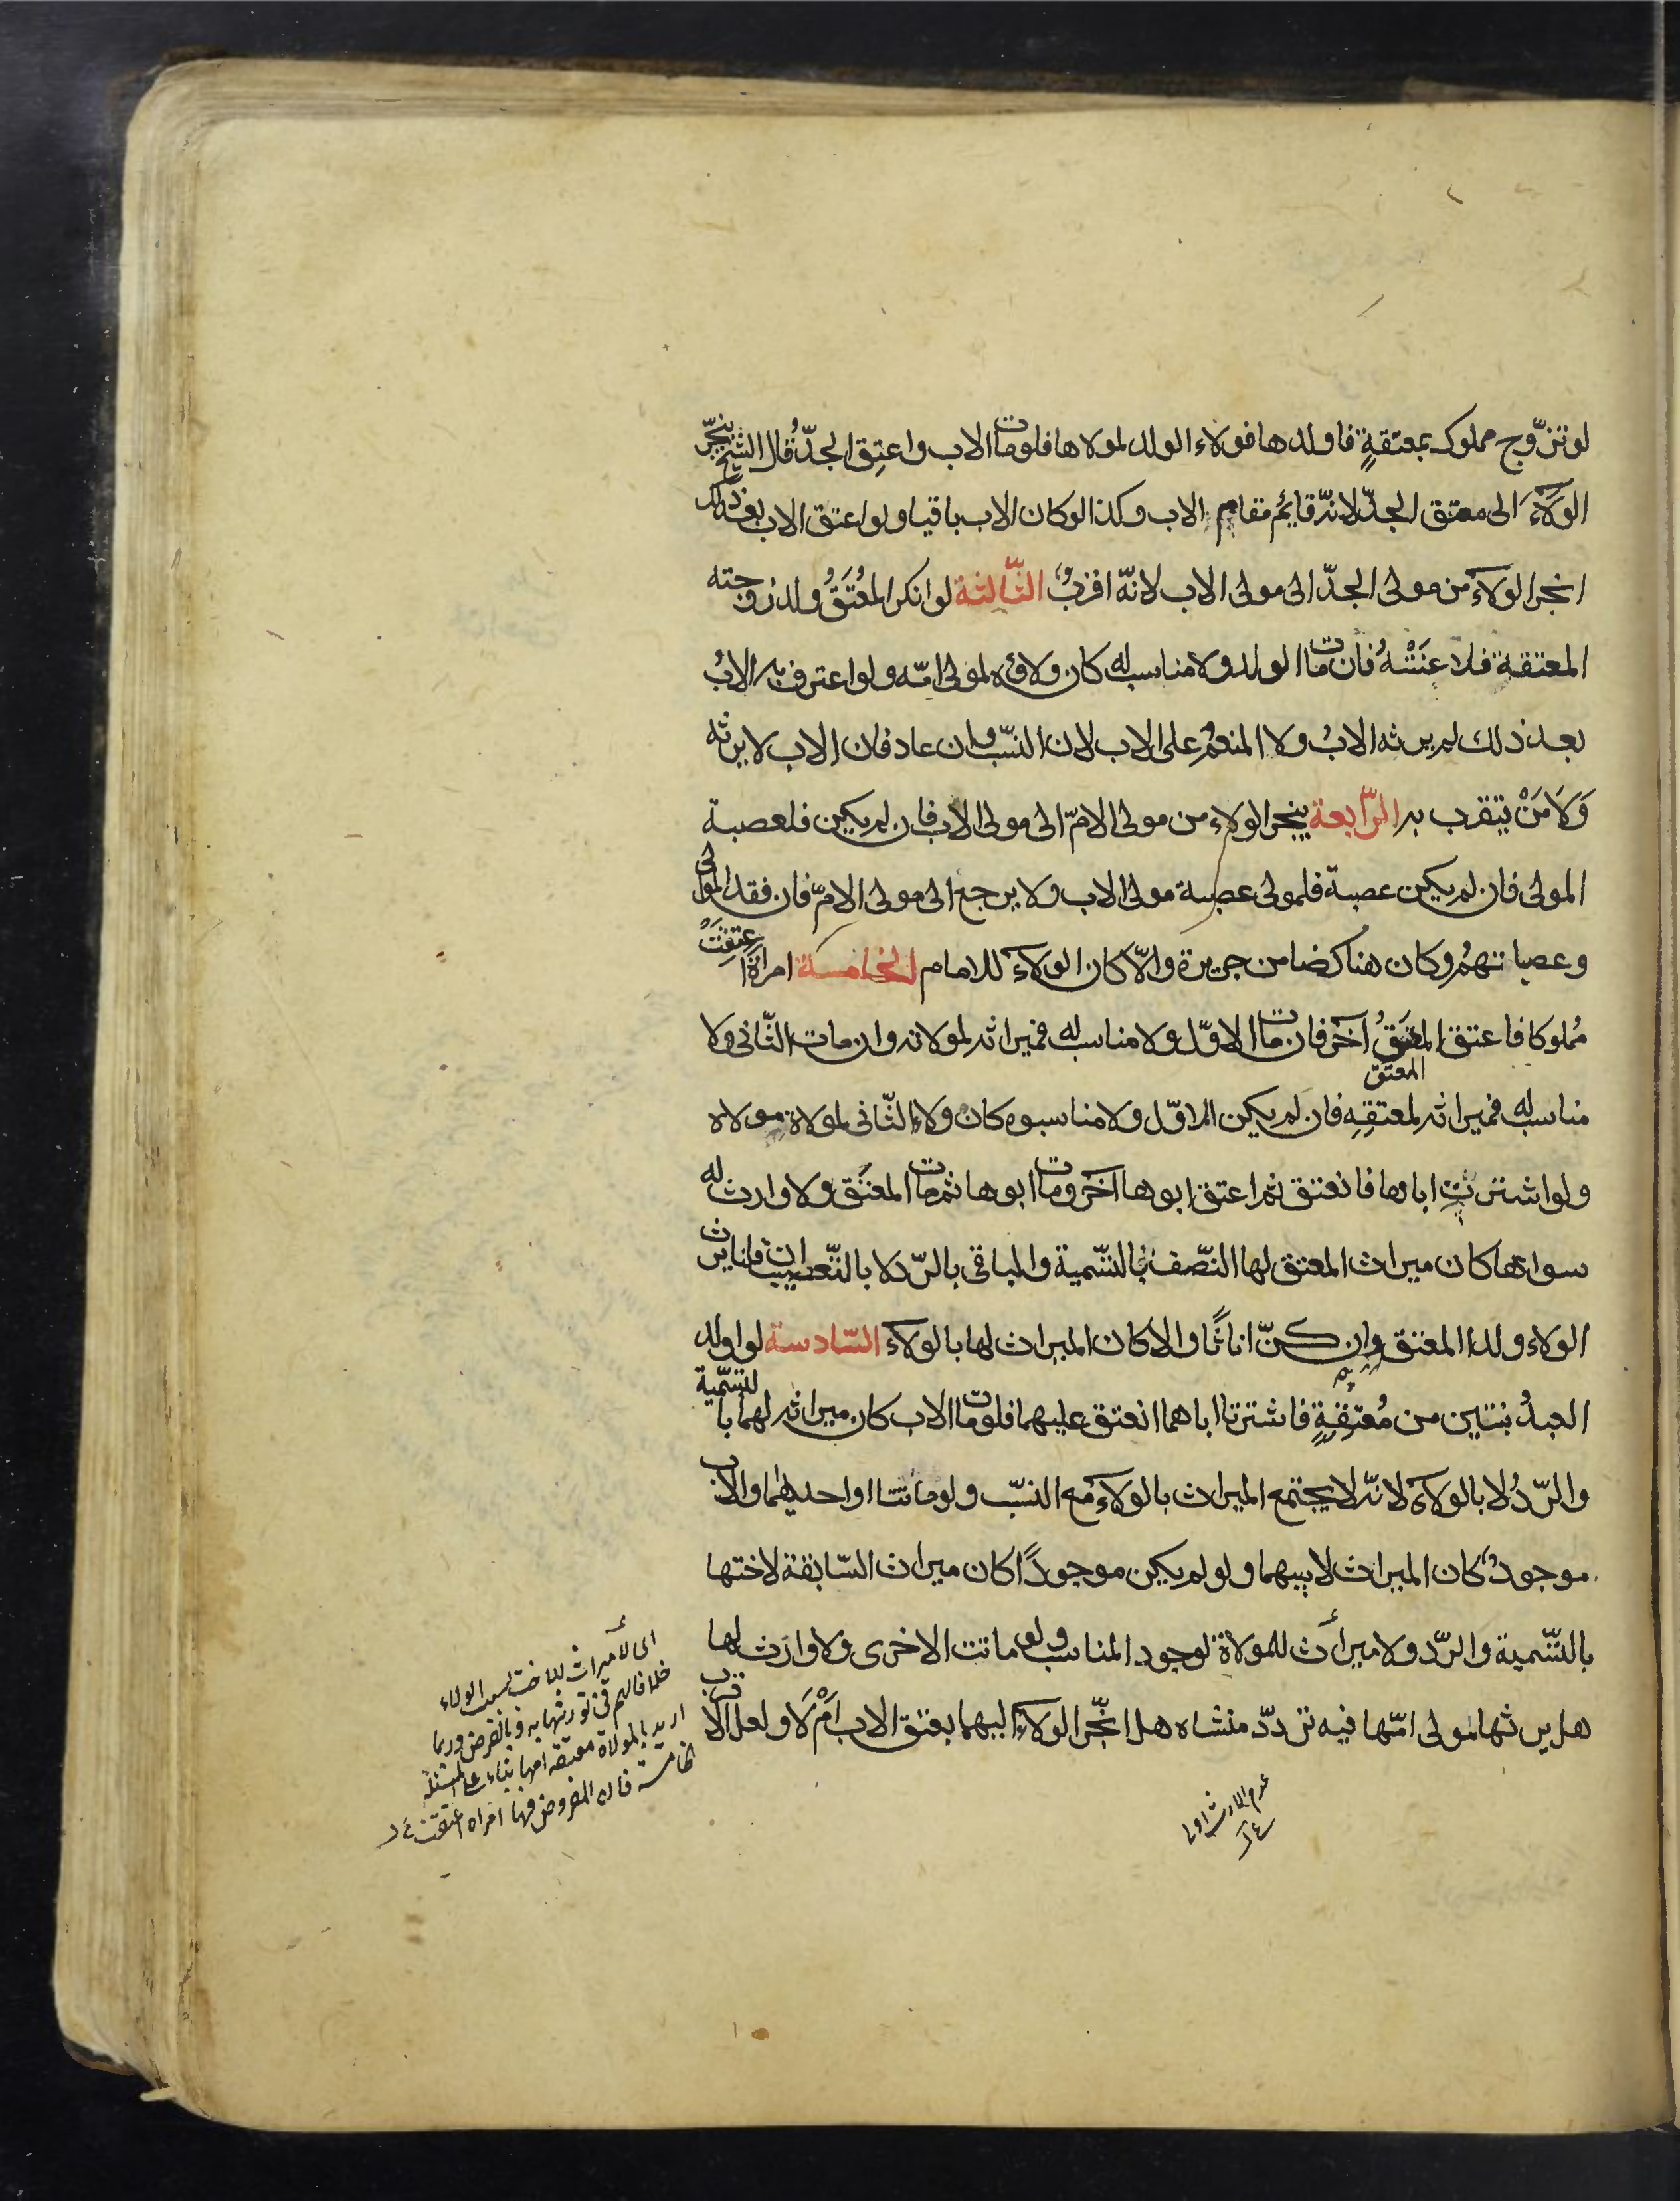 لو تزوّج مملوك بمعتقةٍ فاولدها فولاء الولد لمولاها فلو مات الاب واعتِق الجدّ قال الشيخ ينجرّ
الوَلآءَ الى معتق الجدّ لانّه قايمٌ مقام الاب وكذا لو كان الاب باقيا ولو اعتق الاب بعد ذلك
انجر الولآء من مولى الجدّ الى مولى الاب لانّه اقربُ الثّالثة لو انكر المُعْتَقُ ولد زوجته
المعتقة فلاعَنَتْهُ فان مات الولد ولا مناسب له كان ولاؤه لمولى امّه ولو اعترف به الابُ
بعد ذلك لم يرثه الابُ ولا المنعِمُ على الاب لان النسّب وان عاد فان الاب لا يرثه
وَلَا مَنْ يتقرب به الرّابعة ينجر الولاء من مولى الامّ الى مولى الاب فان لم يكين فلعصبة
المولى فان لم يكين عصبة فلمولى عصبة مولى الاب ولا يرجع الى مولى الامّ فان فقد الموالى
وعصباتهمُ وكان هناك ضامن جريرة والّا كان الولآء للامام الخامسة امرأة اعتِقَتْ
مُملوكا فاعتق المعتَقُ آخَر فان مات الاوّل ولا مناسب له فميراثه لمولاته وان مات الثّانى ولا
المعتَق
مناسب له فميراثه لمعتِقِهِ فان لم يكين الاوّل ولا مناسبوه كان ولاء الثّانى لمولاة مولاه
ولو اشترتْ اباها فانعتق ثم اعتق ابوها آخر ومات ابوها ثم مات المعتَق ولا وارث له
سواها كان ميراث المعتق لها النّصف بالتّسمية والباقى بالرّد لا بالتّعصيب ان قلنا يرث
الولاء ولد المعتق وان كنّ اناثًا والا كان الميراث لها بالولآء السّادسة لو اولد
العبدُ بنتين من مُعتِقةٍ فاشترتا اباهما انعتق عليهما فلو مات الاب كان ميراثه لهما بالتسّمية
والرّد لا بالولآء لانّه لا يجتمع الميراث بالولآء مع النسّب ولو ماتتا او احديهما والاب
موجودٌ كان الميراث لابيهما ولو لم يكين موجودًا كان ميراث السّابقة لاختها
بالتّسمية والرّد ولا ميراث للمولاة لوجود المناسب ولو ماتت الاخرى ولا وارث لها
هل يرثها مولى امّها فيه تردّد منشاه هل انجّر الولآء اليهما بعتق الاب اَمْ لَا ولعل الاقرب
عدم الارث اولا
اى لا ميراث للاخت بسبب الولاء
خلافا لهم فى توريثها به وبالفرض وربما
اريد بالمولاة معتقة امها بناء على المسئلة
الخامسة فان المفروض فيها امراه اعتقت